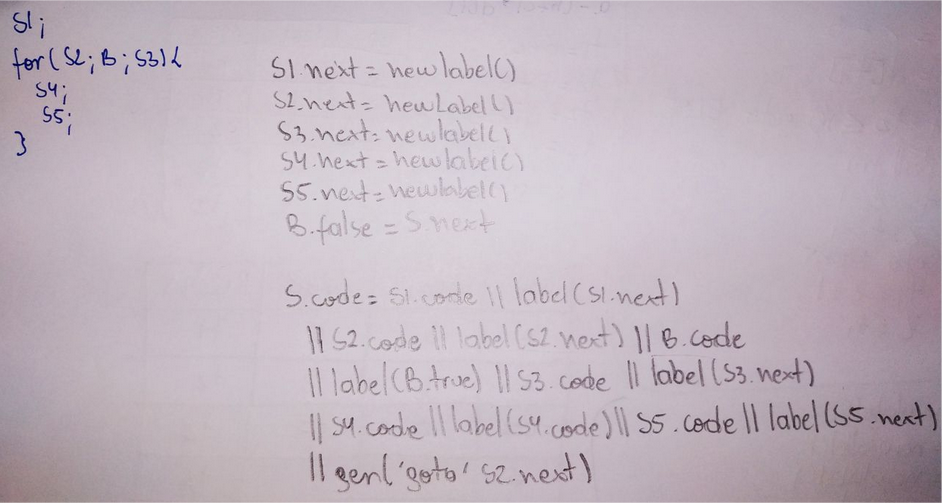 S1;
for(S2;B;S3){
S4;
S5;
}
S1.next = newlabel()
S2.next = newLabel()
S3.next = newlabel()
S4.next = newlabel()
S5.next = newlabel()
B.false = S.next
S.code = S1.code || label(S1.next)
|| S2.code || label(S2.next) || B.code
|| label(B.true) || S3.code || label(S3.next)
|| S4.code || label(S4.code) || S5.code || label(S5.next)
|| gen('goto' S2.next)